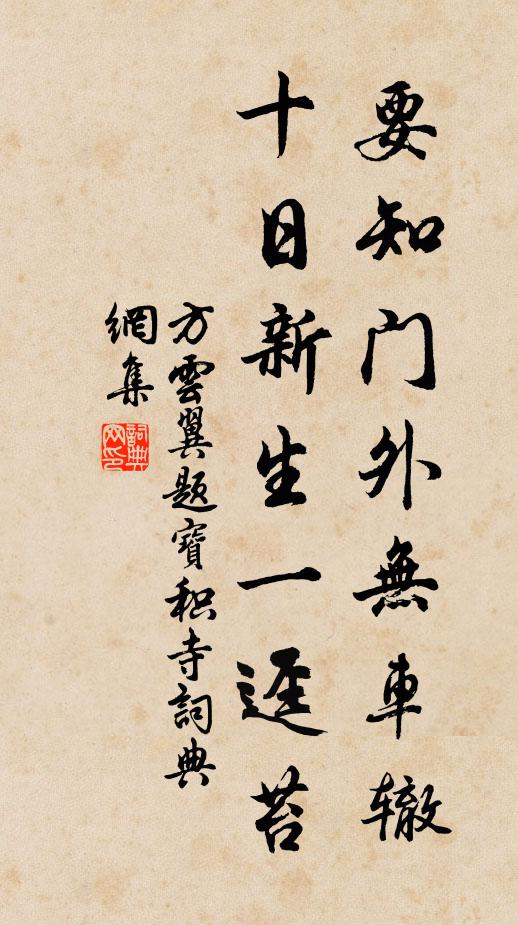 要知門外無車轍
十日新生一逕苔
方雲翼題寶积寺詞典
網集
詞典網印